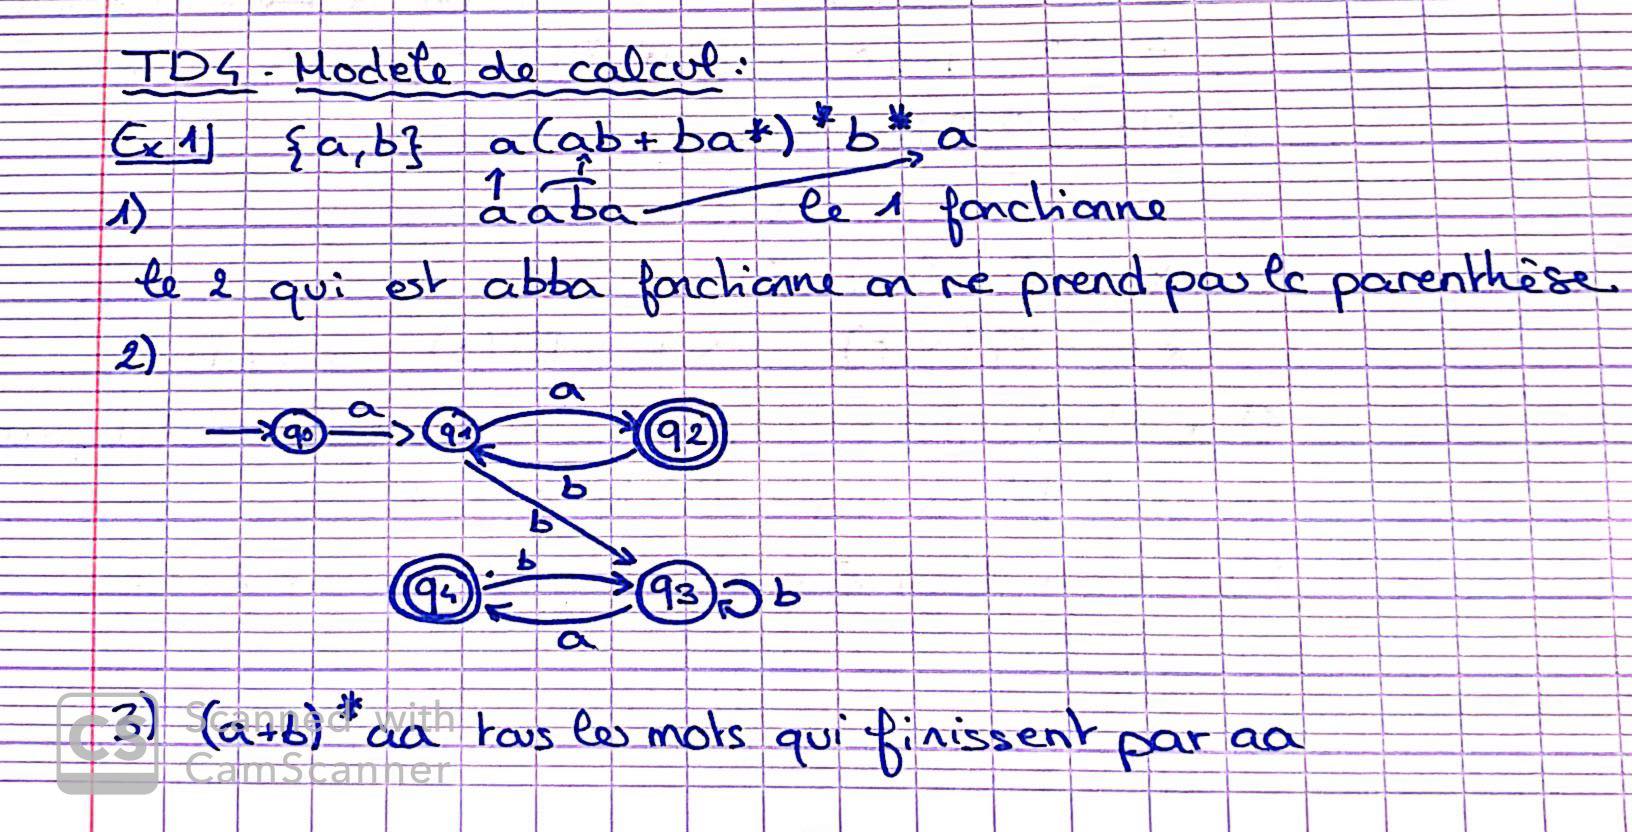 TD4. Modele de calcul:
Ex 1] {a,b} a(ab+ba*)*b*a
1) aaba le 1 fonctionne
le 2 qui est abba fonctionne on ne prend pas la parenthèse.
2)
a a
q0 q1 q2
b
b
b
q4 q3 b
a
3) (a+b)*aa tous les mots qui finissent par aa
CS Scanned with
CamScanner